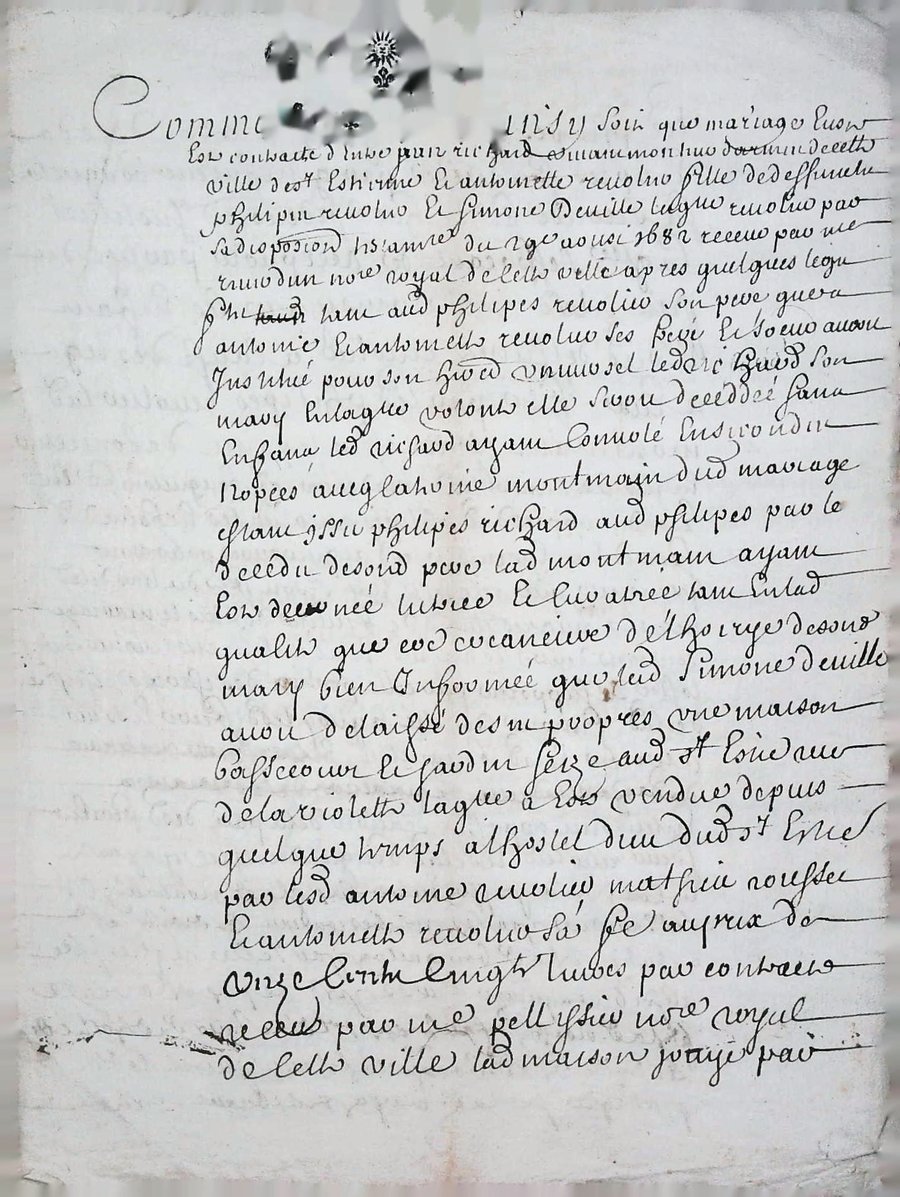 Comme insy soit que mariage Eust
Este contracté d'Entre jean richard de cette
ville de st Estienne Et antoinette revolier fille de deffunctz
philipes revolier Et simone Deville laqlle revolier par
sa disposion du 29e aoust 1682 receue par me
nore royal de cette ville apres quelques legz
tant aud philipes revolier son pere quera
antoine Et antoinette revolier ses frere Et soeur auroit
Institué pour son hered universel led richard son
mary En laqlle volonté elle seroit decedéé sans
Enfans led richard ayant Convolé En secondes
nopces avec montmain dud mariage
estant issu philipes richard aud philipes par le
decedz desond pere lad montmain ayant
Esté decernéé tutrice Et Curatrice tant En lad
qualité que de d'hoirye desond
mary bien Informéé que lad Simone deville
avoit delaissé de ses propres une maison
bassecour Et jardin size aud st Estie rue
de la violette laqlle a Esté vendue depuis
quelque temps a lhostel dieu dud st Estie
par lesd antoine revolier mathieu rousset
Et antoinette revolier sa fe au prix de
unze Centz livres par contract
receu par me pellissier nore royal
de cette ville lad maison jouye par